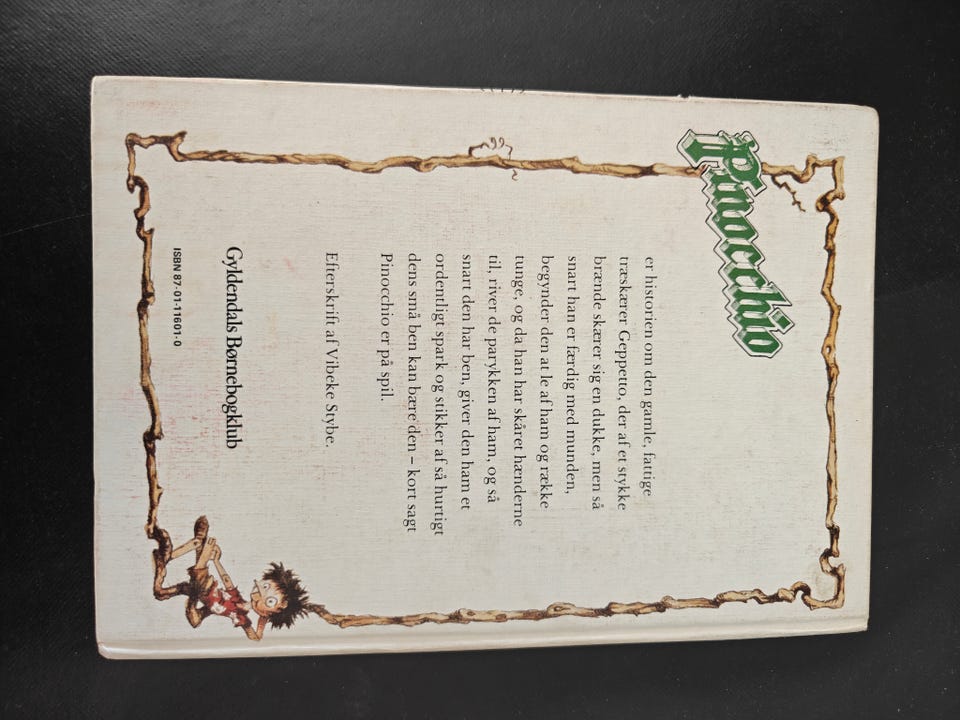 Pinocchio
er historien om den gamle, fattige
træskærer Geppetto, der af et stykke
brænde skærer sig en dukke, men så
snart han er færdig med munden,
begynder den at le af ham og række
tunge, og da han har skåret hænderne
til, river de parykken af ham, og så
snart den har ben, giver den ham et
ordentligt spark og stikker af så hurtigt
dens små ben kan bære den – kort sagt
Pinocchio er på spil.
Efterskrift af Vibeke Stybe.
Gyldendals Børnebogklub
ISBN 87-01-11601-0